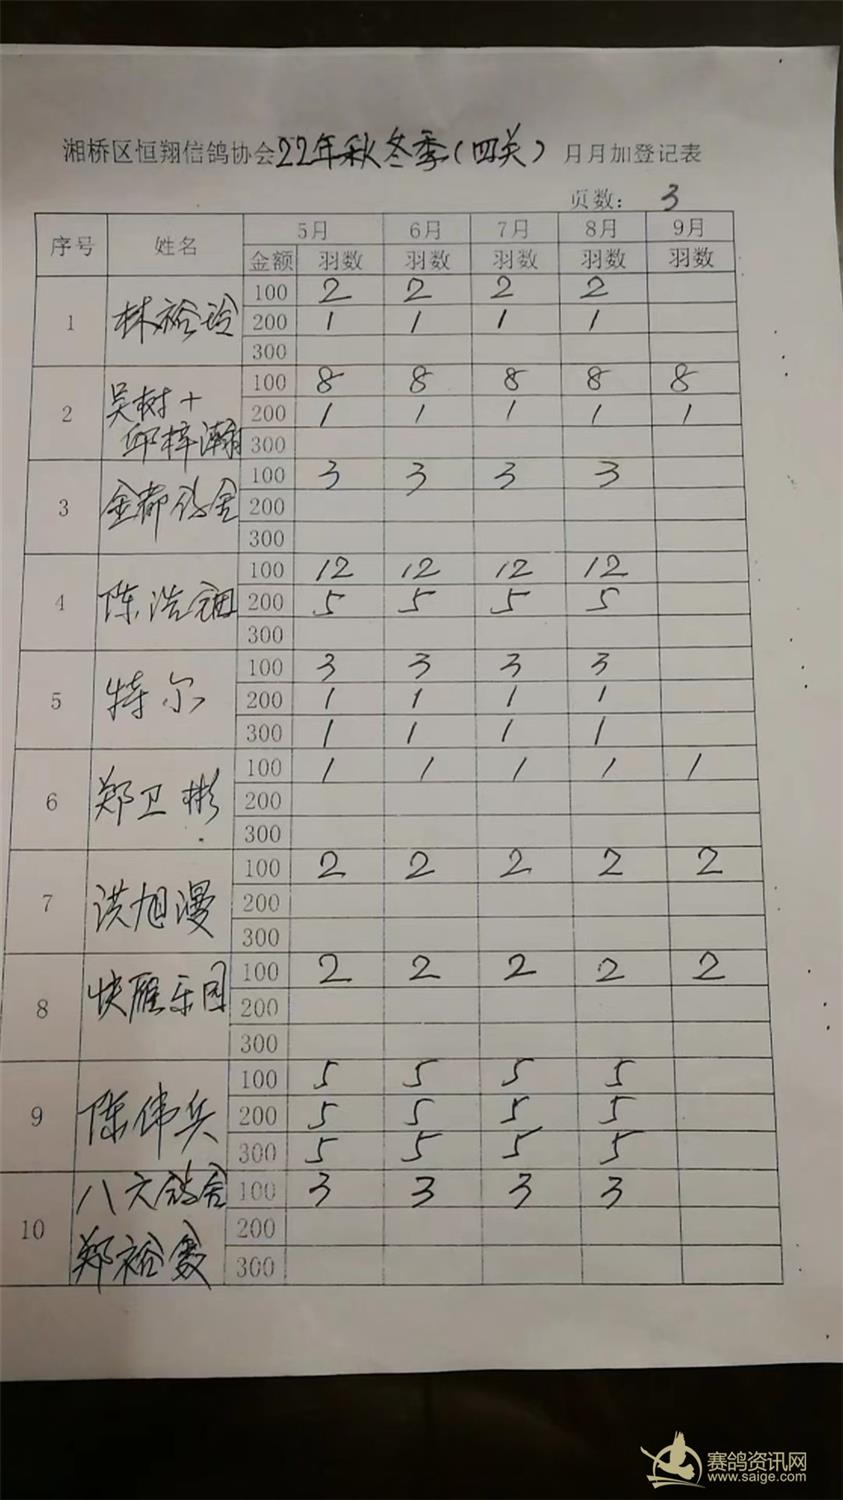 湘桥区恒翔信鸽协会22年秋冬季(四关)月月加登记表
页数: 3
序号 姓名 5月 6月 7月 8月 9月
金额 羽数 羽数 羽数 羽数 羽数
1 林裕玲 100 2 2 2 2
200 1 1 1 1
300
2 吴树+邱梓瀚 100 8 8 8 8 8
200 1 1 1 1 1
300
3 金都鸽舍 100 3 3 3 3
200
300
4 陈浩 100 12 12 12 12
200 5 5 5 5
300
5 特尔 100 3 3 3 3
200 1 1 1 1
300 1 1 1 1
6 郑卫彬 100 1 1 1 1 1
200
300
7 洪旭漫 100 2 2 2 2 2
200
300
8 快雁乐园 100 2 2 2 2 2
200
300
9 陈伟兵 100 5 5 5 5
200 5 5 5 5
300 5 5 5 5
10 八六鸽舍 100 3 3 3 3
郑裕 200
300
赛鸽资讯网
www.saige.com